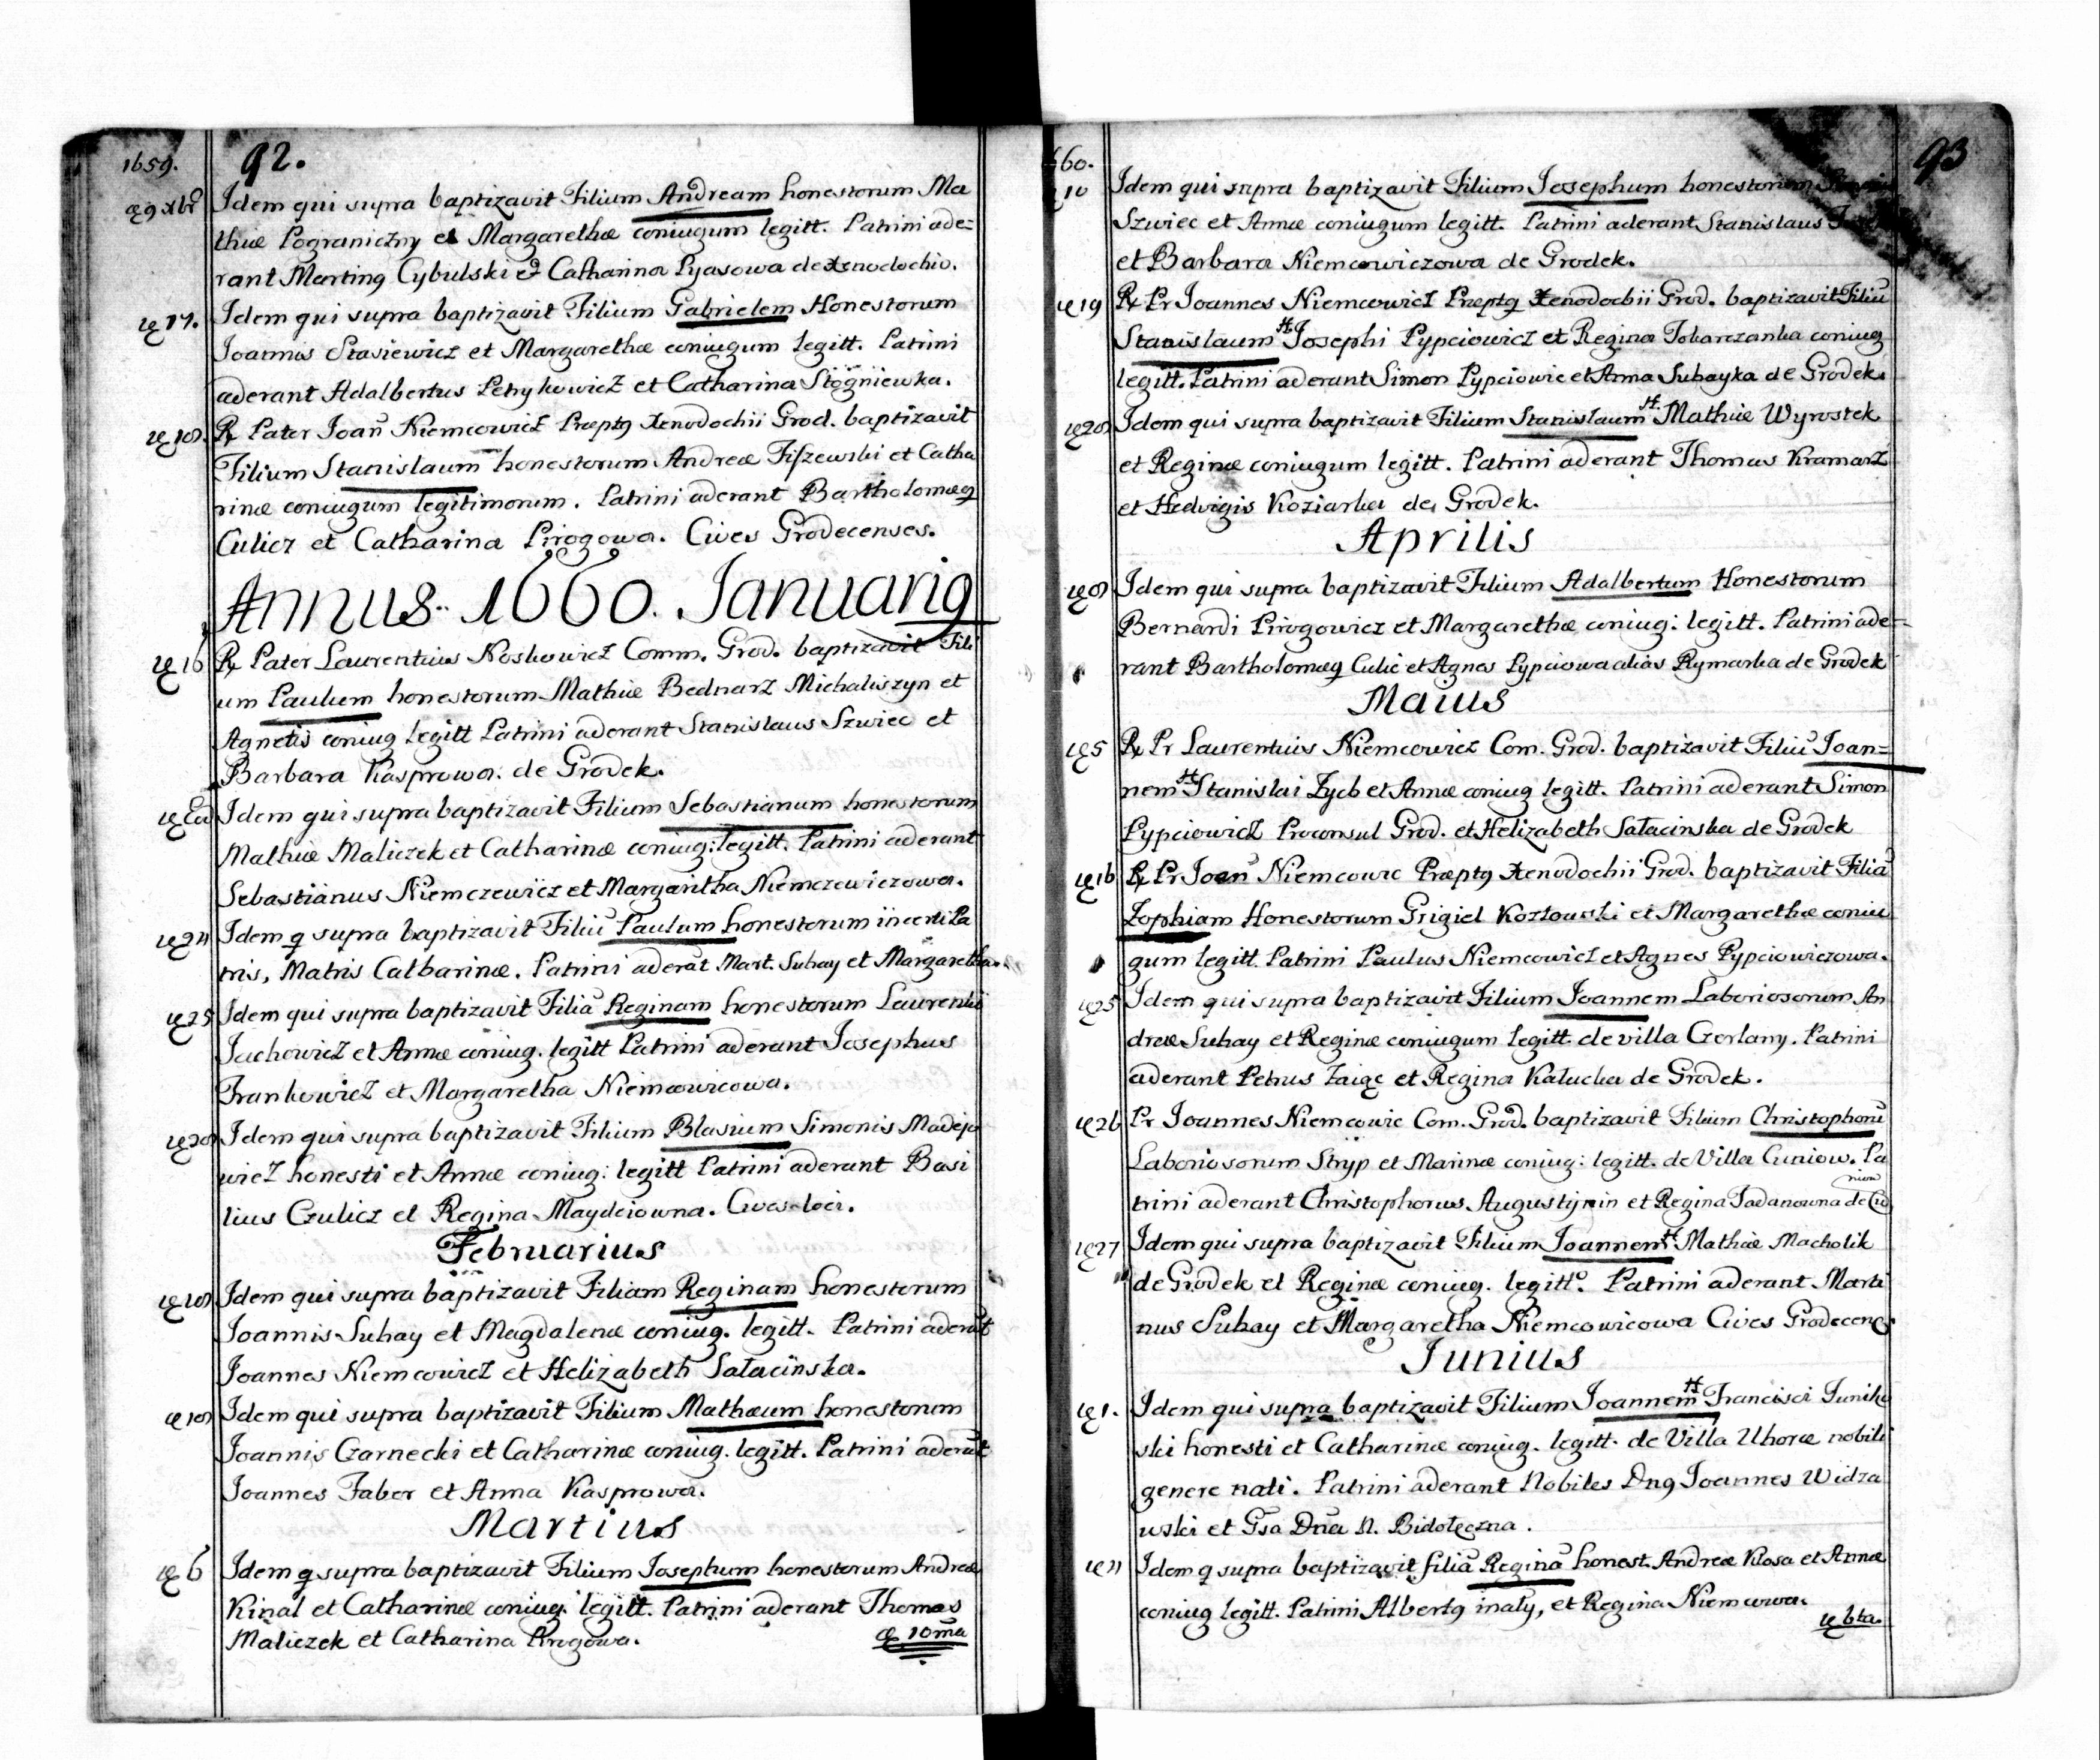 1659. 92.
9 Xbr Idem qui supra baptizavit Filium Andream honestorum Ma
thiæ Pograniczny et Margarethæ coniugum legitt. Patrini ade=
rant Marting Cybulski & Catharina Pyasowa de Xenodochio.
17. Idem qui supra baptizavit Filium Gabrielem Honestorum
Joannis Stasiewicz et Margarethæ coniugum legitt. Patrini
aderant Adalbertus Petrykowicz et Catharina Stogniewka.
Pater Joan Niemcowicz Præptg Xenodochii Grod. baptizavit
Filium Stanislaum honestorum Andreæ Fiszewski et Catha
rinæ coniugum legitimorum. Patrini aderant Bartholomæg
Culicz et Catharina Pirogowa. Cives Grodecenses.
Annus. 1660. Januarig
16 Pater Laurentius Noskowicz Comm. Grod. baptizavit Fili
um Paulum honestorum Mathiæ Bednarz Michaliszyn et
Agnetis coniug legitt Patrini aderant Stanislaus Szwiec et
Barbara Kasprowa. de Grodek.
Idem qui supra baptizavit Filium Sebastianum honestorum
Mathiæ Maliczek et Catharinæ coniug: legitt. Patrini aderant
Sebastianus Niemczewicz et Margaritha Niemczewiczowa.
24 Idem q supra baptizavit Filiu Paulum honestorum incerti Pa
tris, Matris Catharinæ. Patrini aderat Mart. Suhay et Margaretha.
25 Idem qui supra baptizavit Filia Reginam honestorum Laurentii
Jachowicz et Annæ coniug. legitt Patrini aderant Josephus
Frankowicz et Margaretha Niemcowicowa.
Idem qui supra baptizavit Filium Blasium Simonis Madejo
wicz honesti et Annæ coniug: legitt Patrini aderant Basi
lius Czulicz et Regina Maydciowna. Cives loci.
Februarius
Idem qui supra baptizavit Filiam Reginam honestorum
Joannis Suhay et Magdalenæ coniug. legitt. Patrini aderat
Joannes Niemcowicz et Helizabeth Sałacinska.
Idem qui supra baptizavit Filium Mathæum honestorum
Joannis Czarnecki et Catharinæ coniug. legitt. Patrini aderat
Joannes Faber et Anna Kasprowa.
Martius
6 Idem q supra baptizavit Filium Josephum honestorum Andreæ
Kinal et Catharinæ coniug. legitt. Patrini aderant Thomas
Maliczek et Catharina Pirogowa. 10ma
660. 93
10 Idem qui supra baptizavit Filium Josephum honestorum
Szwiec et Annæ coniugum legitt. Patrini aderant Stanislaus
et Barbara Niemcowiczowa de Grodek.
19 Pr Joannes Niemcowicz Præptg Xenodochii Grod. baptizavit Filiu
Stanislaum H Josephi Pypciowicz et Regina Tokarczanka coniug
legitt. Patrini aderant Simon Pypciowic et Anna Suhayka de Grodek.
Idem qui supra baptizavit Filium Stanislaum H. Mathiæ Wyrostek
et Reginæ coniugum legitt. Patrini aderant Thomas Kramarz
et Hedvigis Koziarka de Grodek.
Aprilis
Idem qui supra baptizavit Filium Adalbertum Honestorum
Bernardi Pirogowicz et Margarethæ coniug: legitt. Patrini ade=
rant Bartholomæg Culic et Agnes Pypciowa alias Rymarka de Grodek
Maius
5 Pr Laurentius Niemcowicz Com. Grod. baptizavit Filiu Joan=
nem H Stanislai Zych et Annæ coniug legitt. Patrini aderant Simon
Pypciowicz Proconsul Grod. et Helizabeth Sałacinska de Grodek
16 Pr Joan Niemcowic Præptg Xenodochii Grod. baptizavit Filia
Zophiam Honestorum Grigiel Kozłowski et Margarethæ coniu
gum legitt. Patrini Paulus Niemcowicz et Agnes Pypciowiczowa.
25 Idem qui supra baptizavit Filium Joannem Laboriosorum An
dreæ Suhay et Reginæ coniugum legitt. de villa Czerlany. Patrini
aderant Petrus Zaigc et Regina Kałucka de Grodek.
26 Pr Joannes Niemcowic Com. Grod. baptizavit Filium Christophoru
Laboriosorum Stryp et Marinæ coniug: legitt. de Villa Cuniow. Pa
trini aderant Christophorus Augustynin et Regina Jadanowna de Cu
niow
27 Idem qui supra baptizavit Filium Joannem H Mathiæ Macholik
de Grodek et Reginæ coniug. legitt. Patrini aderant Marti
nus Suhay et Margaretha Niemcowicowa Cives Grodecens
Junius
1. Idem qui supra baptizavit Filium Joannem H Francisci Juniko
ski honesti et Catharinæ coniug. legitt. de Villa Uhorce nobili
genere nati. Patrini aderant Nobiles Dng Joannes Widza
wski et Gsa Dna N. Bidołęczna.
11 Idem q supra baptizavit filia Regina honest. Andreæ Kłosa et Annæ
coniug legitt. Patrini Albertg inały, et Regina Niemcowa.
6ta.